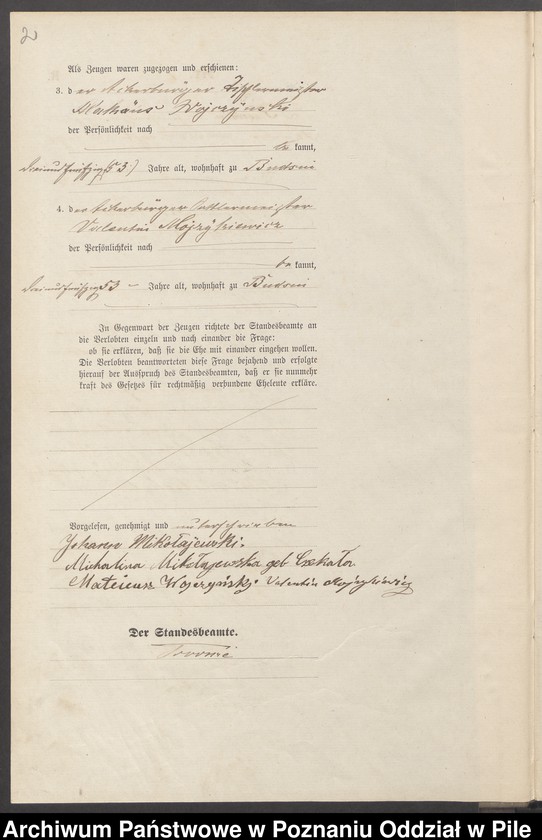 2
Als Zeugen waren zugezogen und erschienen:
3. der Ackerbürger Töpfermeister
Mathäus Wojczynski
der Persönlichkeit nach
be kannt,
dreiundfünfzig (53) Jahre alt, wohnhaft zu Budsin
4. der Ackerbürger Sattlermeister
Valentin
der Persönlichkeit nach
be kannt,
dreiundfünfzig 53 – Jahre alt, wohnhaft zu Budsin
In Gegenwart der Zeugen richtete der Standesbeamte an
die Verlobten einzeln und nach einander die Frage:
ob sie erklären, daß sie die Ehe mit einander eingehen wollen.
Die Verlobten beantworteten diese Frage bejahend und erfolgte
hierauf der Ausspruch des Standesbeamten, daß er sie nunmehr
kraft des Gesetzes für rechtmäßig verbundene Eheleute erkläre.
Vorgelesen, genehmigt und unterschrieben
Johann Mikołajewski.
Michalina Mikołajewska geb Czekała
Mateusz Wojczyński Valentin
Der Standesbeamte.
Archiwum Państwowe w Poznaniu Oddział w Pile